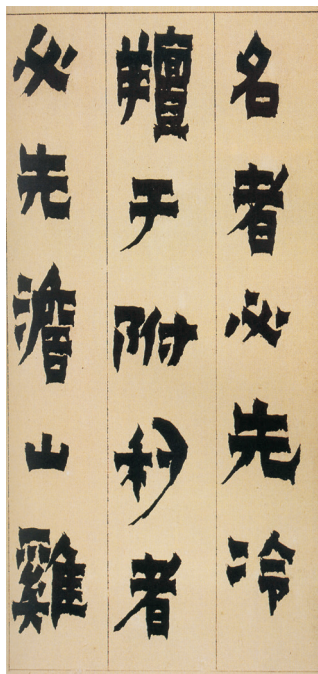 名者必先冷
羶于附利者
必先澹山雞